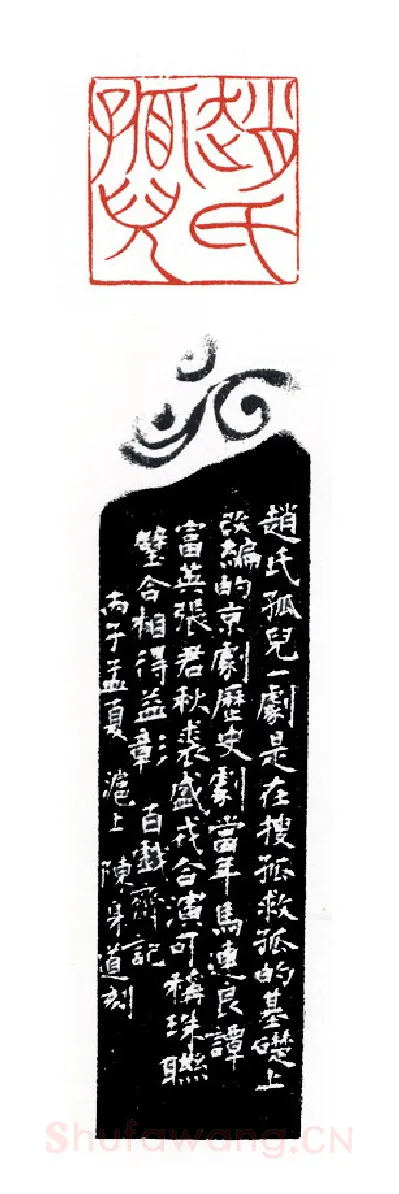 趙氏孤兒
趙氏孤兒一劇是在搜孤救孤的基礎上
改編的京劇歷史劇當年馬連良譚
富英張君秋裘盛戎合演可稱珠聯
璧合相得益彰 百戲齋記
丙子孟夏 滬上陳身道刻
Shufawang.CN